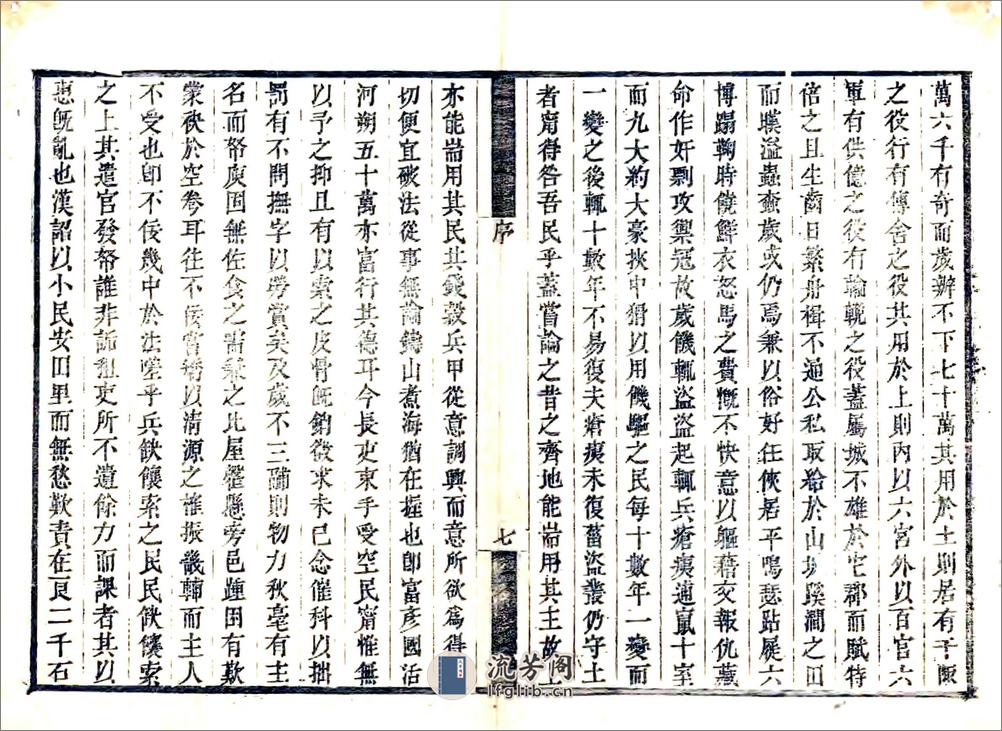 萬六千有奇而歲辦不下七十萬其用於土則居有子陬
之役行有傳舍之役其用於上則內以六宮外以百官六
軍有供億之役有輸輓之役蓋屬城不雄於它郡而賦特
倍之且生齒日繁舟楫不通公私取給於山坡蹊澗之田
而暵溢蟲螽歲或仍焉兼以俗好任俠居平鳴瑟跕屣六
博蹋鞠時饒鮮衣怒馬之費慨不快意以軀藉交報仇藏
命作奸剽攻輿冠故歲饑輒盜盜起輒兵瘡痍逋竄十室
而九大約大豪挾中猾以用饑驅之民每十數年一變而
一變之後輒十數年不易復夫瘡痍未復菑盜叢仍守土
者甯得咎吾民乎蓋嘗論之昔之齊地能耑用其主故
序
七
亦能耑用其民其錢穀兵甲從意調興而意所欲為得
切便宜破法從事無論鑄山煮海猶在握也卽富彥國活
河朔五十萬亦富行其德耳今長吏束手受空民甯惟無
以予之抑且有以索之皮骨旣銷徵求未已念催科以拙
罰有不問撫字以勞賞矣及歲不三鬴則物力秋毫有主
名而帑庾固無佐食之需繫之比屋罄懸旁邑踵困有歎
蒙袂於空拳耳往不佞嘗譑以清源之
振畿輔而主人
不受也卽不佞幾中於法嗟乎兵餽饟索之民民餽饟索
之上其遣官發帑誰非詬租吏所不遺餘力而課者其以
惠旣亂也漢詔以小民安田里而無愁歎責在良二千石
流芳阁
lfglib.cn